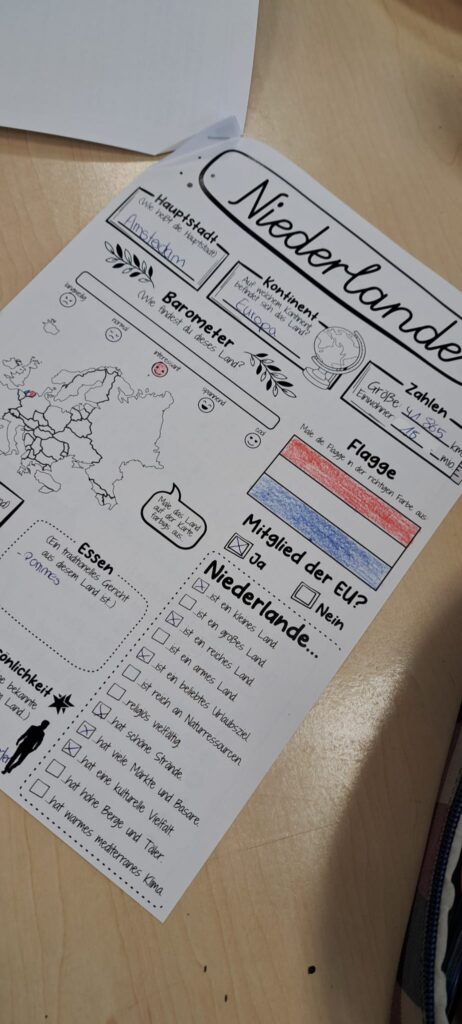 Niederlande
Hauptstadt
(Wie heißt die Hauptstadt?)
Amsterdam
Kontinent
Auf welchem Kontinent
befindet sich das Land?
Europa
Zahlen
Größe 41.865 km
Einwohner 15 mio
Barometer
(Wie findest du dieses Land?)
langweilig
normal
interessant
spannend
cool
Male das Land
auf der Karte
farbig aus.
Flagge
Male die Flagge in der richtigen Farbe aus
Mitglied der EU?
Ja
Nein
Essen
(Ein traditionelles Gericht
aus diesem Land ist:)
Pommes
Niederlande...
...ist ein kleines Land.
...ist ein großes Land.
...ist ein reiches Land.
...ist ein armes Land.
...ist ein beliebtes Urlaubsziel.
...ist reich an Naturressourcen.
...religiös vielfältig.
...hat schöne Strände.
...hat viele Märkte und Basare.
...hat eine kulturelle Vielfalt.
...hat hohe Berge und Täler.
...hat warmes mediterranes Klima.
sönlichkeit
e bekannte
Land.)